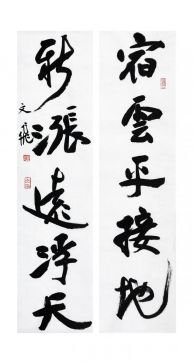 宿雲平接地
新漲遠浮天
文飛